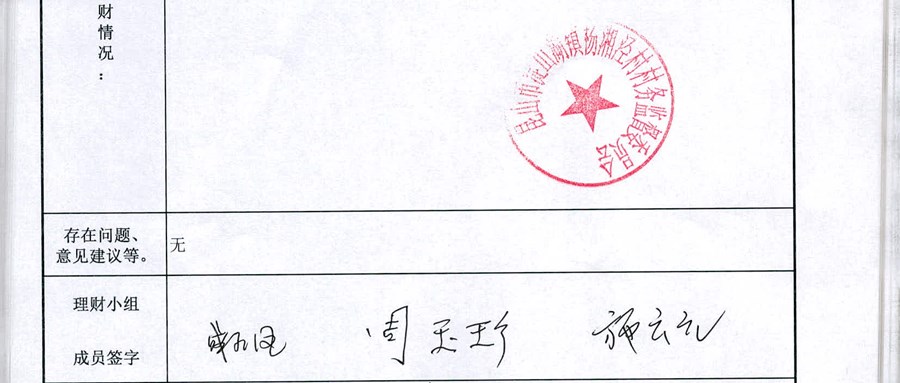 财
情
况
：
昆山市淀山湖镇杨湘泾村村务监督委员会
存在问题、
意见建议等。
无
理财小组
成员签字
周玉珍
施云元